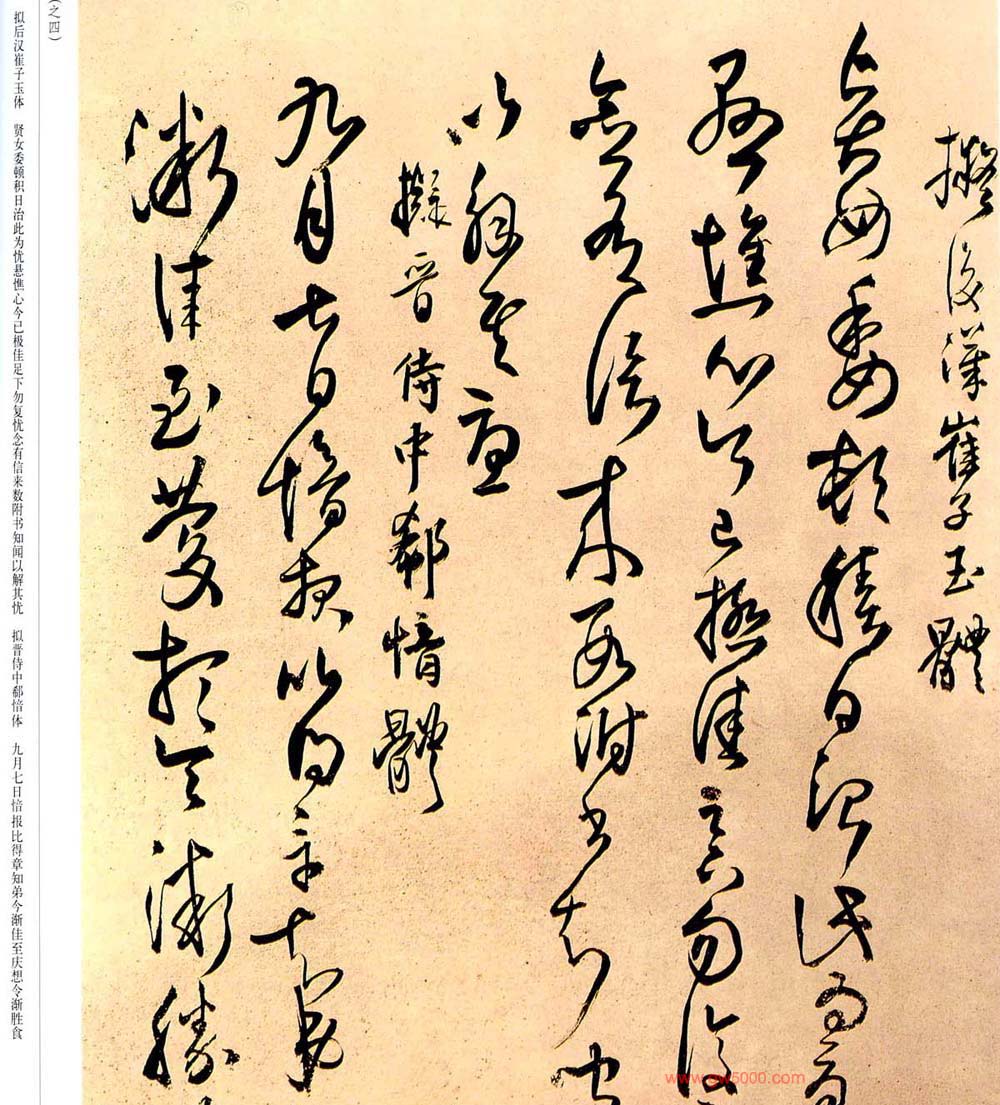 擬後漢崔子玉體
賢女委頓積日治此為
懸憔心今已極佳足下勿復
念有信來數附書知聞
以解其憂
擬晉侍中郗愔體
九月七日愔報比得章知弟
漸佳至慶想令漸勝
（之四）
拟后汉崔子玉体 贤女委顿积日治此为忧悬憔心今已极佳足下勿复忧念有信来数附书知闻以解其忧 拟晋侍中郗愔体 九月七日愔报比得章知弟今渐佳至庆想令渐胜食
www.gw5000.com